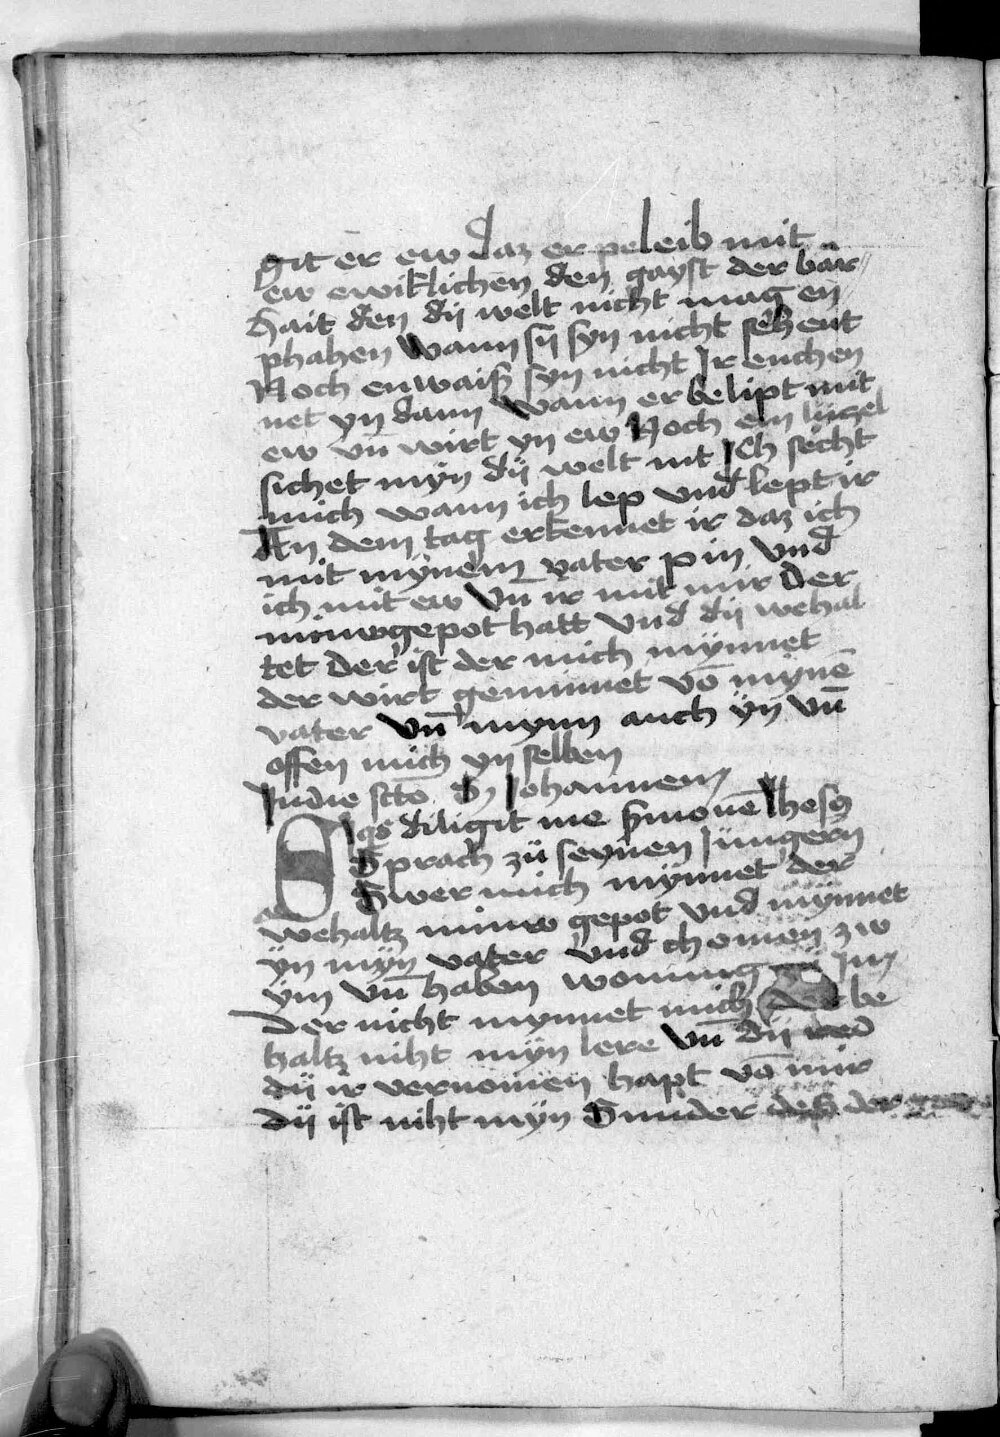 git er ew daz er peleib mit
ew ewiklichen den gayst der bär
hait den dij welt nicht mag en
phahen Wann sij syn nicht sehent
Noch enwaiß syn nicht Ir enchen
net yn dann Wann er belipt mit
ew vn̄ wirt yn ew Noch ein lüzel
sichet mÿn dij welt nit Ich secht
mich wann ich lep vnd lept ir
An dem tag erkennet ir daz ich
mit mÿnem vater pin Vnd
ich mit ew Vn̄ ir mit mir Der
minw gepot hatt Vnd dij wehal
tet Der ist der mich mÿnnet
der wirt geminnet vō mÿnē
vater Vn̄ mynn auch ÿn vn̄
offen mich yn selben
In die scto S Johannem
Sigs diligit me Smonē Ihesꝰ
Sprach zü seynen Jüngern
Swer mich mÿnnet der
wehaltz minw gepot Vnd mÿnnet
ÿn mÿn vater Vnd chomen zw
ÿm Vn̄ haben wonung Im
Der nicht mynnet mich der be
haltz niht mÿn lere Vn̄ dij red
dij ir vernomen hapt vō mir
dij ist niht mÿn Sunder deß der